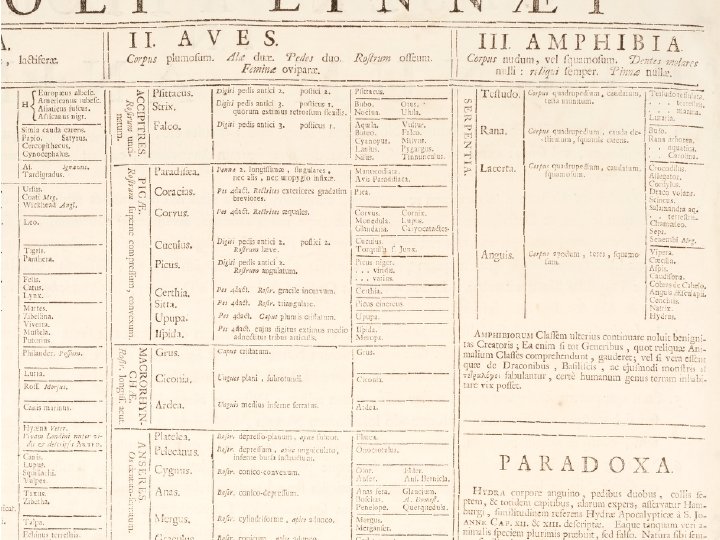 OLI LINNÆI
A.
, lactiferæ.
H
Europæus albesc.
Americanus rubesc.
Asiaticus fuscus.
Africanus nigr.
Simia cauda carens.
Papio. Satyrus.
Cercopithecus.
Cynocephalus.
Ai. Ignavus.
Tardigradus.
Ursus.
Coati Mrg.
Wickhead Angl.
Leo.
Tigris.
Panthera.
Felis.
Catus.
Lynx.
Martes.
Zibellina.
Viverra.
Mustela.
Putorius.
Philander. Possum.
Lutra.
Ross. Morsus.
Canis marinus.
Hyæna Veter.
Canis.
Lupus.
Squillachi.
Vulpes.
Taxus.
Zibetha.
Talpa.
Echinus terrestris.
II. AVES.
Corpus plumosum. Alæ duæ. Pedes duo. Rostrum osseum.
Feminæ oviparæ.
ACCIPITRES.
Rostrum uncinatum.
Psittacus. Digiti pedis antici 2. postici 2. Psittacus.
Strix. Digiti pedis antici 3. posticus 1. quorum extimus retrorsum flexilis. Bubo. Otus.
Noctua. Ulula.
Falco. Digiti pedis antici 3. posticus 1. Aquila. Vultur.
Buteo. Falco.
Cyanopus. Milvus.
Lanius. Pygargus.
Nisus. Tinnunculus.
PICÆ.
Rostrum superne compressum, convexum.
Paradisæa. Pennæ 2. longissimæ, singulares, nec alis, nec uropygio infixæ. Manucodiata.
Avis Paradisiaca.
Coracias. Pes 4dact. Rectrices exteriores gradatim breviores. Pica.
Corvus. Pes 4dact. Rectrices æquales. Corvus. Cornix.
Monedula. Lupus.
Glandaria. Caryocatactes.
Cuculus. Digiti pedis antici 2. postici 2.
Rostrum læve. Cuculus.
Torquilla s. Jynx.
Picus. Digiti pedis antici 2.
Rostrum angulatum. Picus niger.
. . . viridis.
. . . varius.
Certhia. Pes 4dact. Rostr. gracile incurvum. Certhia.
Sitta. Pes 4dact. Rostr. triangulare. Picus cinereus.
Upupa. Pes 4dact. Caput plumis cristatum. Upupa.
Ispida. Pes 4dact. cujus digitus extimus medio adnectitur tribus articulis. Ispida.
Merops.
MACRORHYNCHÆ.
Rostr. longum, acut.
Grus. Caput cristatum. Grus.
Ciconia. Ungues plani, subrotundi. Ciconia.
Ardea. Unguis medius inferne serratus. Ardea.
ANSERES.
Platelea. Rostr. depresso-planum, apice subrot. Platea.
Pelecanus. Rostr. depressum, apice unguiculato, inferne bursa instructum. Onocrotalus.
Cygnus. Rostr. conico-convexum. Olor. Eider.
Anser. An. Bernicla.
Anas. Rostr. conico-depressum. Anas fera. Glaucium.
Penelope. Querquedula.
Mergus. Rostr. cylindriforme, apice adunco. Mergus.
Merganser.
III. AMPHIBIA.
Corpus nudum, vel squamosum. Dentes molares
nulli : reliqui semper. Pinnæ nullæ.
SERPENTIA.
Testudo. Corpus quadrupedium, caudatum, testa munitum. Testudo tessulata.
. . . terrestris.
. . . marina.
Lutaria.
Rana. Corpus quadrupedium, cauda destitutum, squamis carens. Bufo.
Rana arborea.
. . aquatica.
. . Carolina.
Lacerta. Corpus quadrupedium, caudatum, squamosum. Crocodilus.
Allegator.
Cordylus.
Draco volans.
Scincus.
Salamandra aq.
. . . terrestris.
Chamæleo.
Seps.
Senembi Mrg.
Anguis. Corpus apodum, teres, squamosum. Vipera.
Cæcilia.
Aspis.
Caudisona.
Cobras de Cabelo.
Anguis Æsculapii.
Cenchris.
Natrix.
Hydrus.
AMPHIBIORUM Classem ulterius continuare noluit benigni-
tas Creatoris ; Ea enim si tot Generibus, quot reliquæ Ani-
malium Classes comprehendunt, gauderet; vel si vera essent
quæ de Draconibus, Basiliscis, ac ejusmodi monstris
fabulantur, certè humanum genus terram inhabi-
tare vix posset.
PARADOXA.
HYDRA corpore anguino, pedibus duobus, collis se-
ptem, & totidem capitibus, alarum expers, asservatur Ham-
burgi, similitudinem referens Hydræ Apocalypticæ à S. Jo-
ANNE CAP. XII. & XIII. descriptæ. Eaque tanquam veri a-
nimalis speciem plurimis præbuit, sed falso. Natura sibi sem-